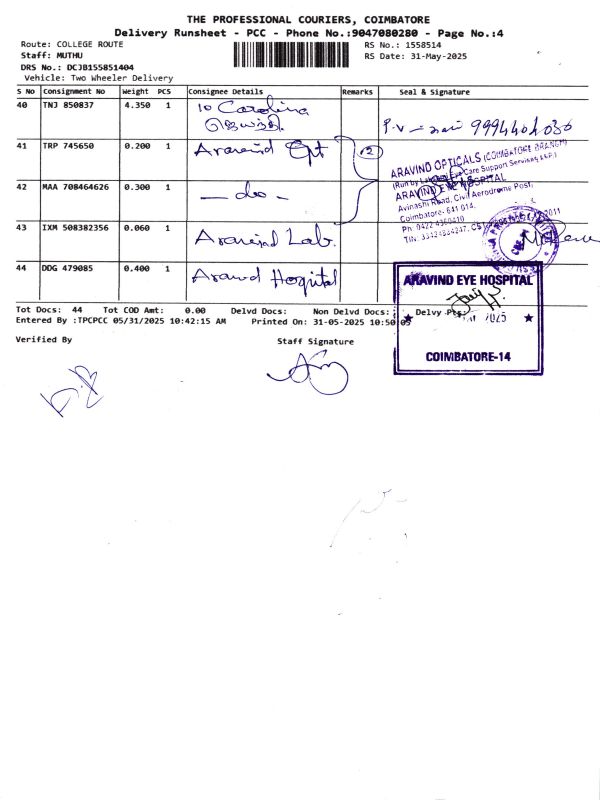 THE PROFESSIONAL COURIERS, COIMBATORE
Delivery Runsheet - PCC - Phone No.:9047080280 - Page No.:4
Route: COLLEGE ROUTE
RS No.: 1558514
Staff: MUTHU
RS Date: 31-May-2025
DRS No.: DCJB155851404
Vehicle: Two Wheeler Delivery
S No Consignment No Weight PCS Consignee Details Remarks Seal & Signature
40 TNJ 850837 4.350 1 10 Carolina
ஜெயந்தி
P.V 9994404036
41 TRP 745650 0.200 1 Aravind Opt 2
ARAVIND OPTICALS (COIMBATORE BRANCH)
ARAVIND EYE HOSPITAL
Avinashi Road, Civil Aerodrome Post,
Coimbatore- 641 014.
Ph: 0422 4360410
42 MAA 708464626 0.300 1 - do -
43 IXM 508382356 0.060 1 Aravind Lab.
44 DDG 479085 0.400 1 Aravind Hospital
ARAVIND EYE HOSPITAL
2025
COIMBATORE-14
Tot Docs: 44 Tot COD Amt: 0.00 Delvd Docs: Non Delvd Docs: Delvy Per:
Entered By :TPCPCC 05/31/2025 10:42:15 AM Printed On: 31-05-2025 10:50:05
Verified By Staff Signature